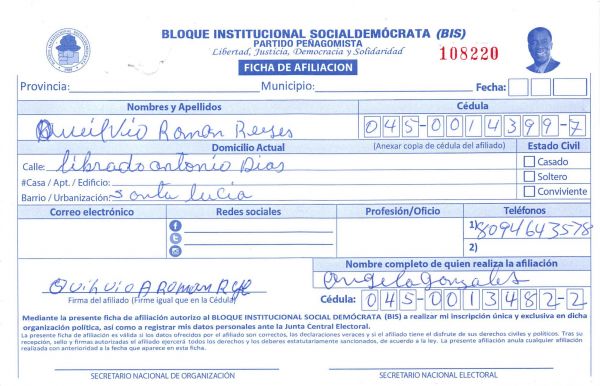 BLOQUE INSTITUCIONAL SOCIALDEMÓCRATA (BIS)
PARTIDO PEÑAGOMISTA
Libertad, Justicia, Democracia y Solidaridad
108220
FICHA DE AFILIACION
Provincia: Municipio: Fecha:
Nombres y Apellidos Cédula
Quilvio Roman Reyes 045-0014399-7
Domicilio Actual (Anexar copia de cédula del afiliado) Estado Civil
Calle: librado antonio Dias Casado
#Casa / Apt. / Edificio: Soltero
Barrio / Urbanización: Santa lucia Conviviente
Correo electrónico Redes sociales Profesión/Oficio Teléfonos
1) 8094643578
2)
Nombre completo de quien realiza la afiliación
Quilvio A Roman Angela Gonzales
Firma del afiliado (Firme igual que en la Cédula) Cédula: 045-0013482-2
Mediante la presente ficha de afiliación autorizo al BLOQUE INSTITUCIONAL SOCIAL DEMÓCRATA (BIS) a realizar mi inscripción única y exclusiva en dicha
organización política, así como a registrar mis datos personales ante la Junta Central Electoral.
La presente ficha de afiliación es válida si los datos ofrecidos por el afiliado son correctos, las declaraciones veraces y si el afiliado tiene el disfrute de sus derechos civiles y políticos. Tras su
recepción, sello y firmas autorizadas el afiliado ejercerá todos los derechos y los deberes estatutariamente sancionados, de acuerdo a la ley. La presente afiliación anula cualquier afiliación
realizada con anterioridad a la fecha que aparece en esta ficha.
SECRETARIO NACIONAL DE ORGANIZACIÓN SECRETARIO NACIONAL ELECTORAL